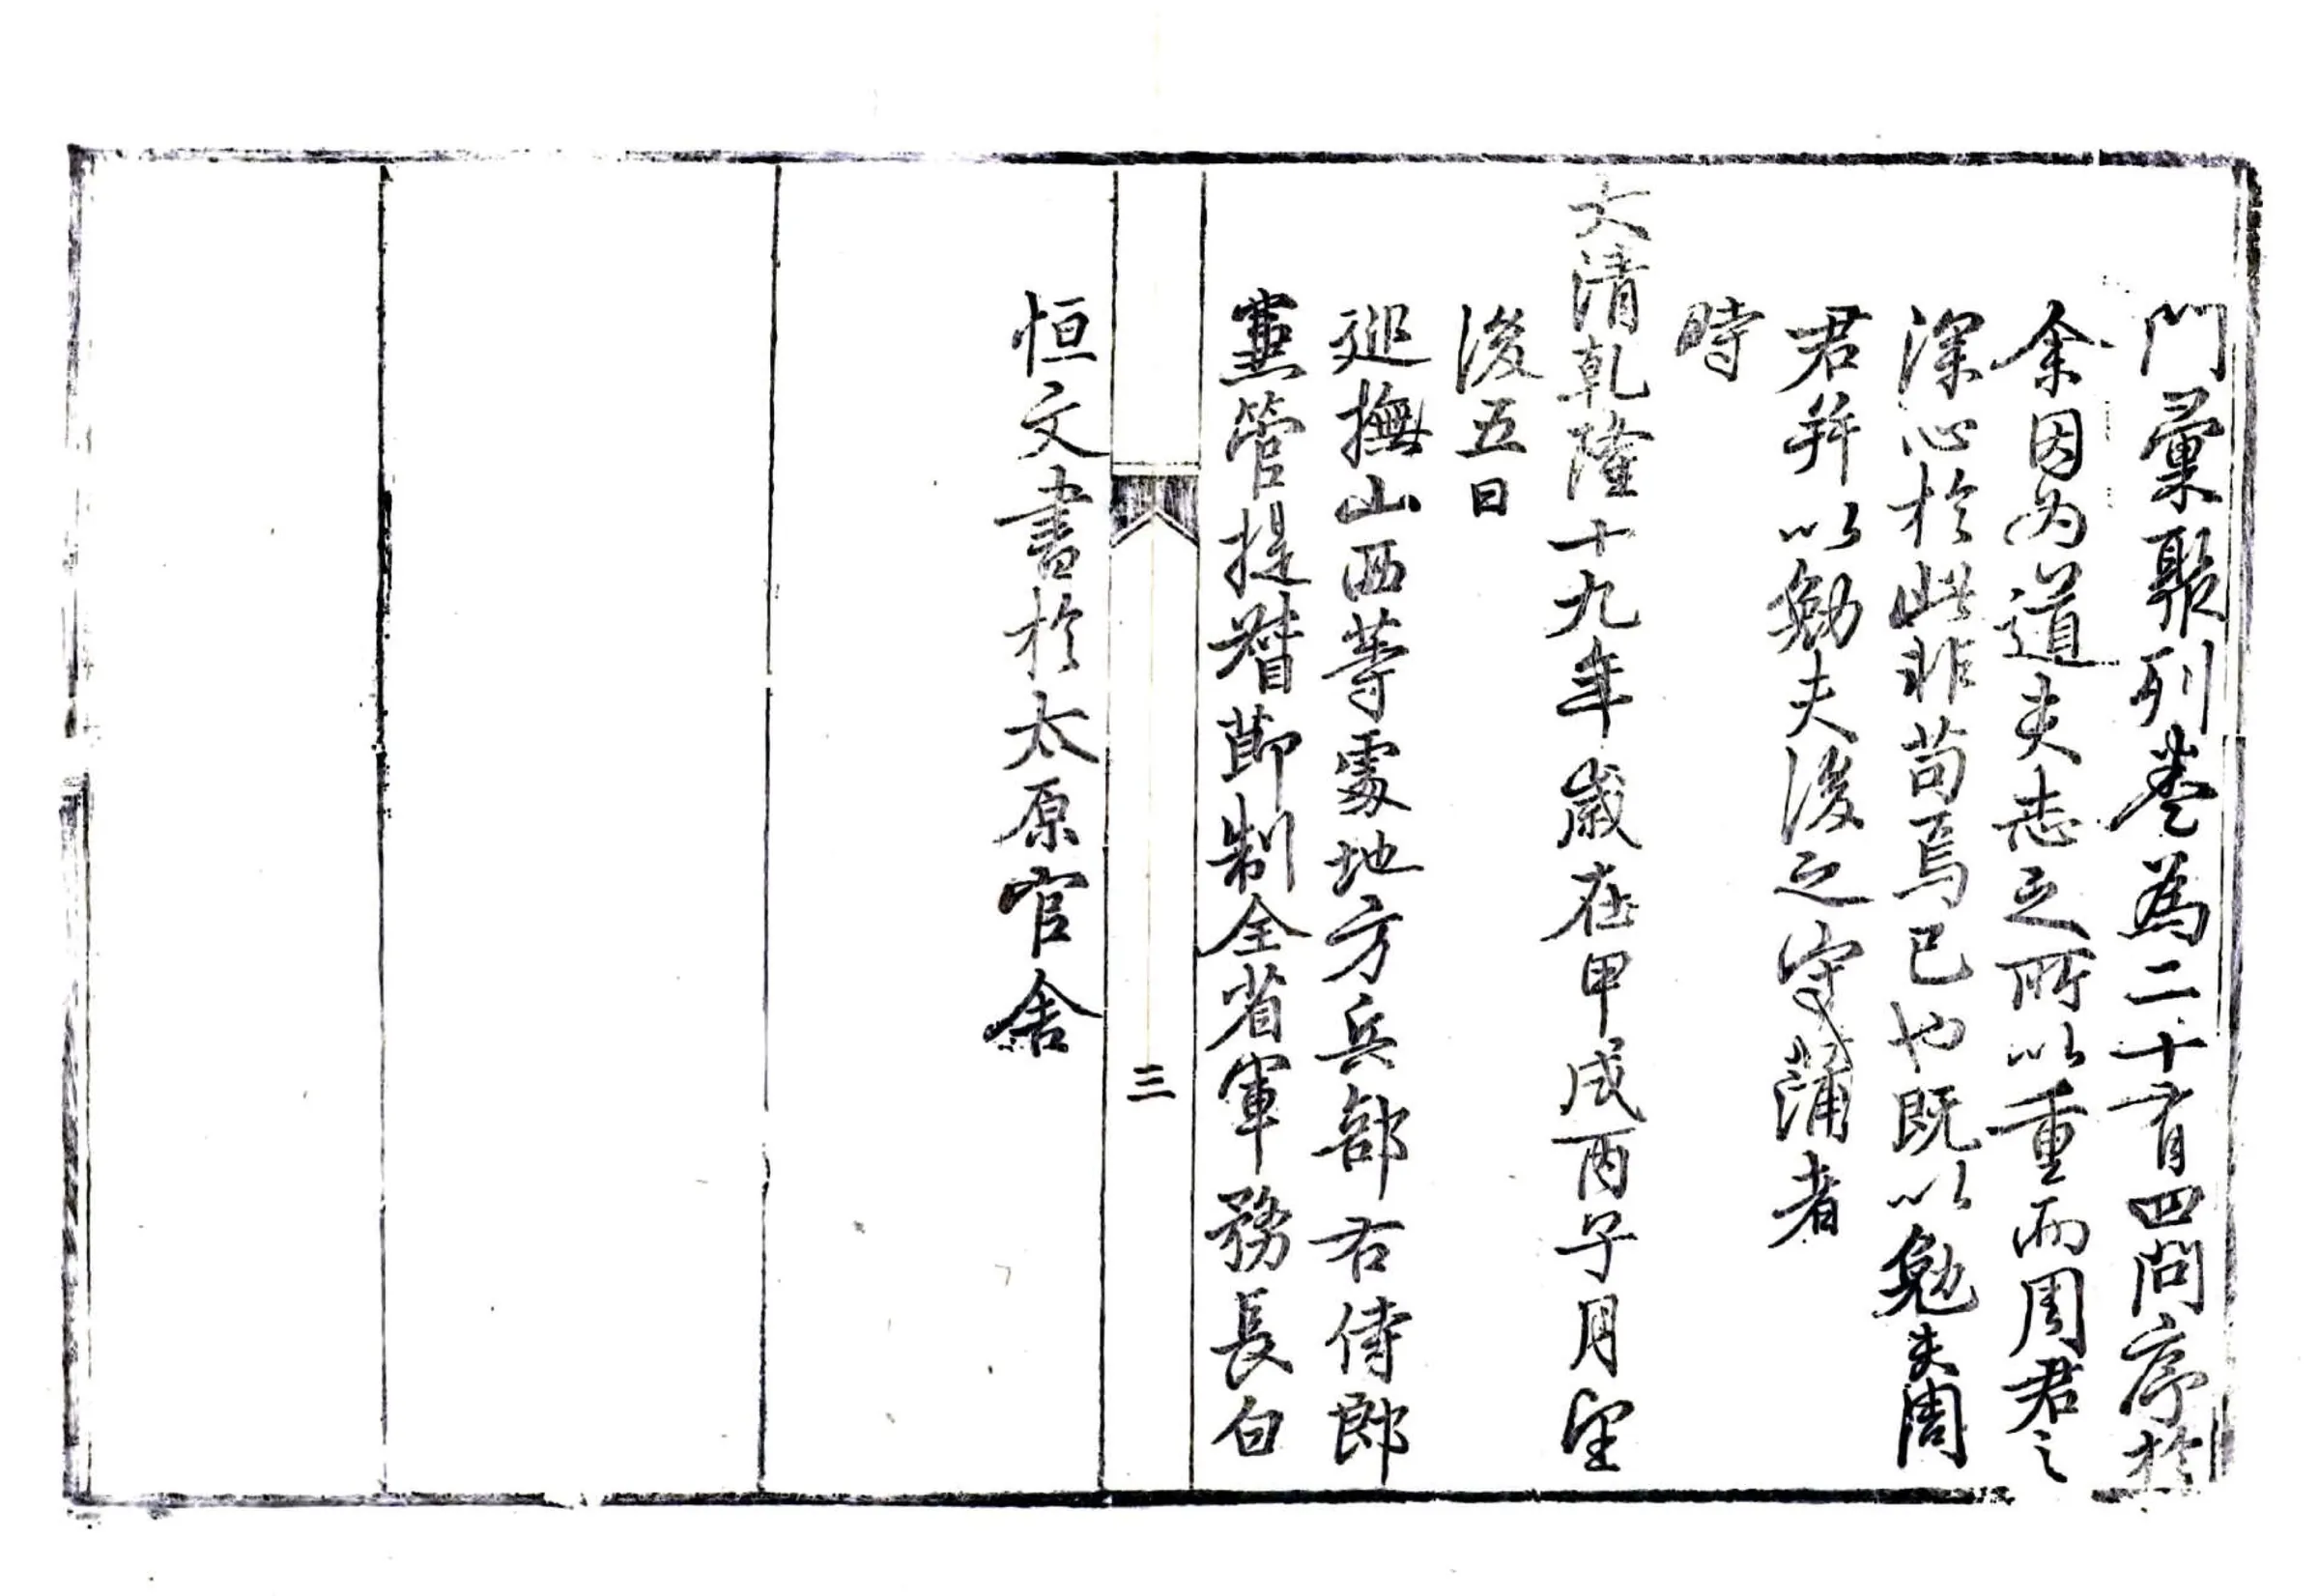 門彙聚列卷為二十有四問序於
余因為道夫志之所以重而周君之
深心於此非苟焉已也既以勉夫周
君并以勉夫後之守蒲者
時
大清乾隆十九年歲在甲戌丙子月望
後五日
廵撫山西等處地方兵部右侍郎
兼管提督莭制全省軍務長白
三
恒文書於太原官舍